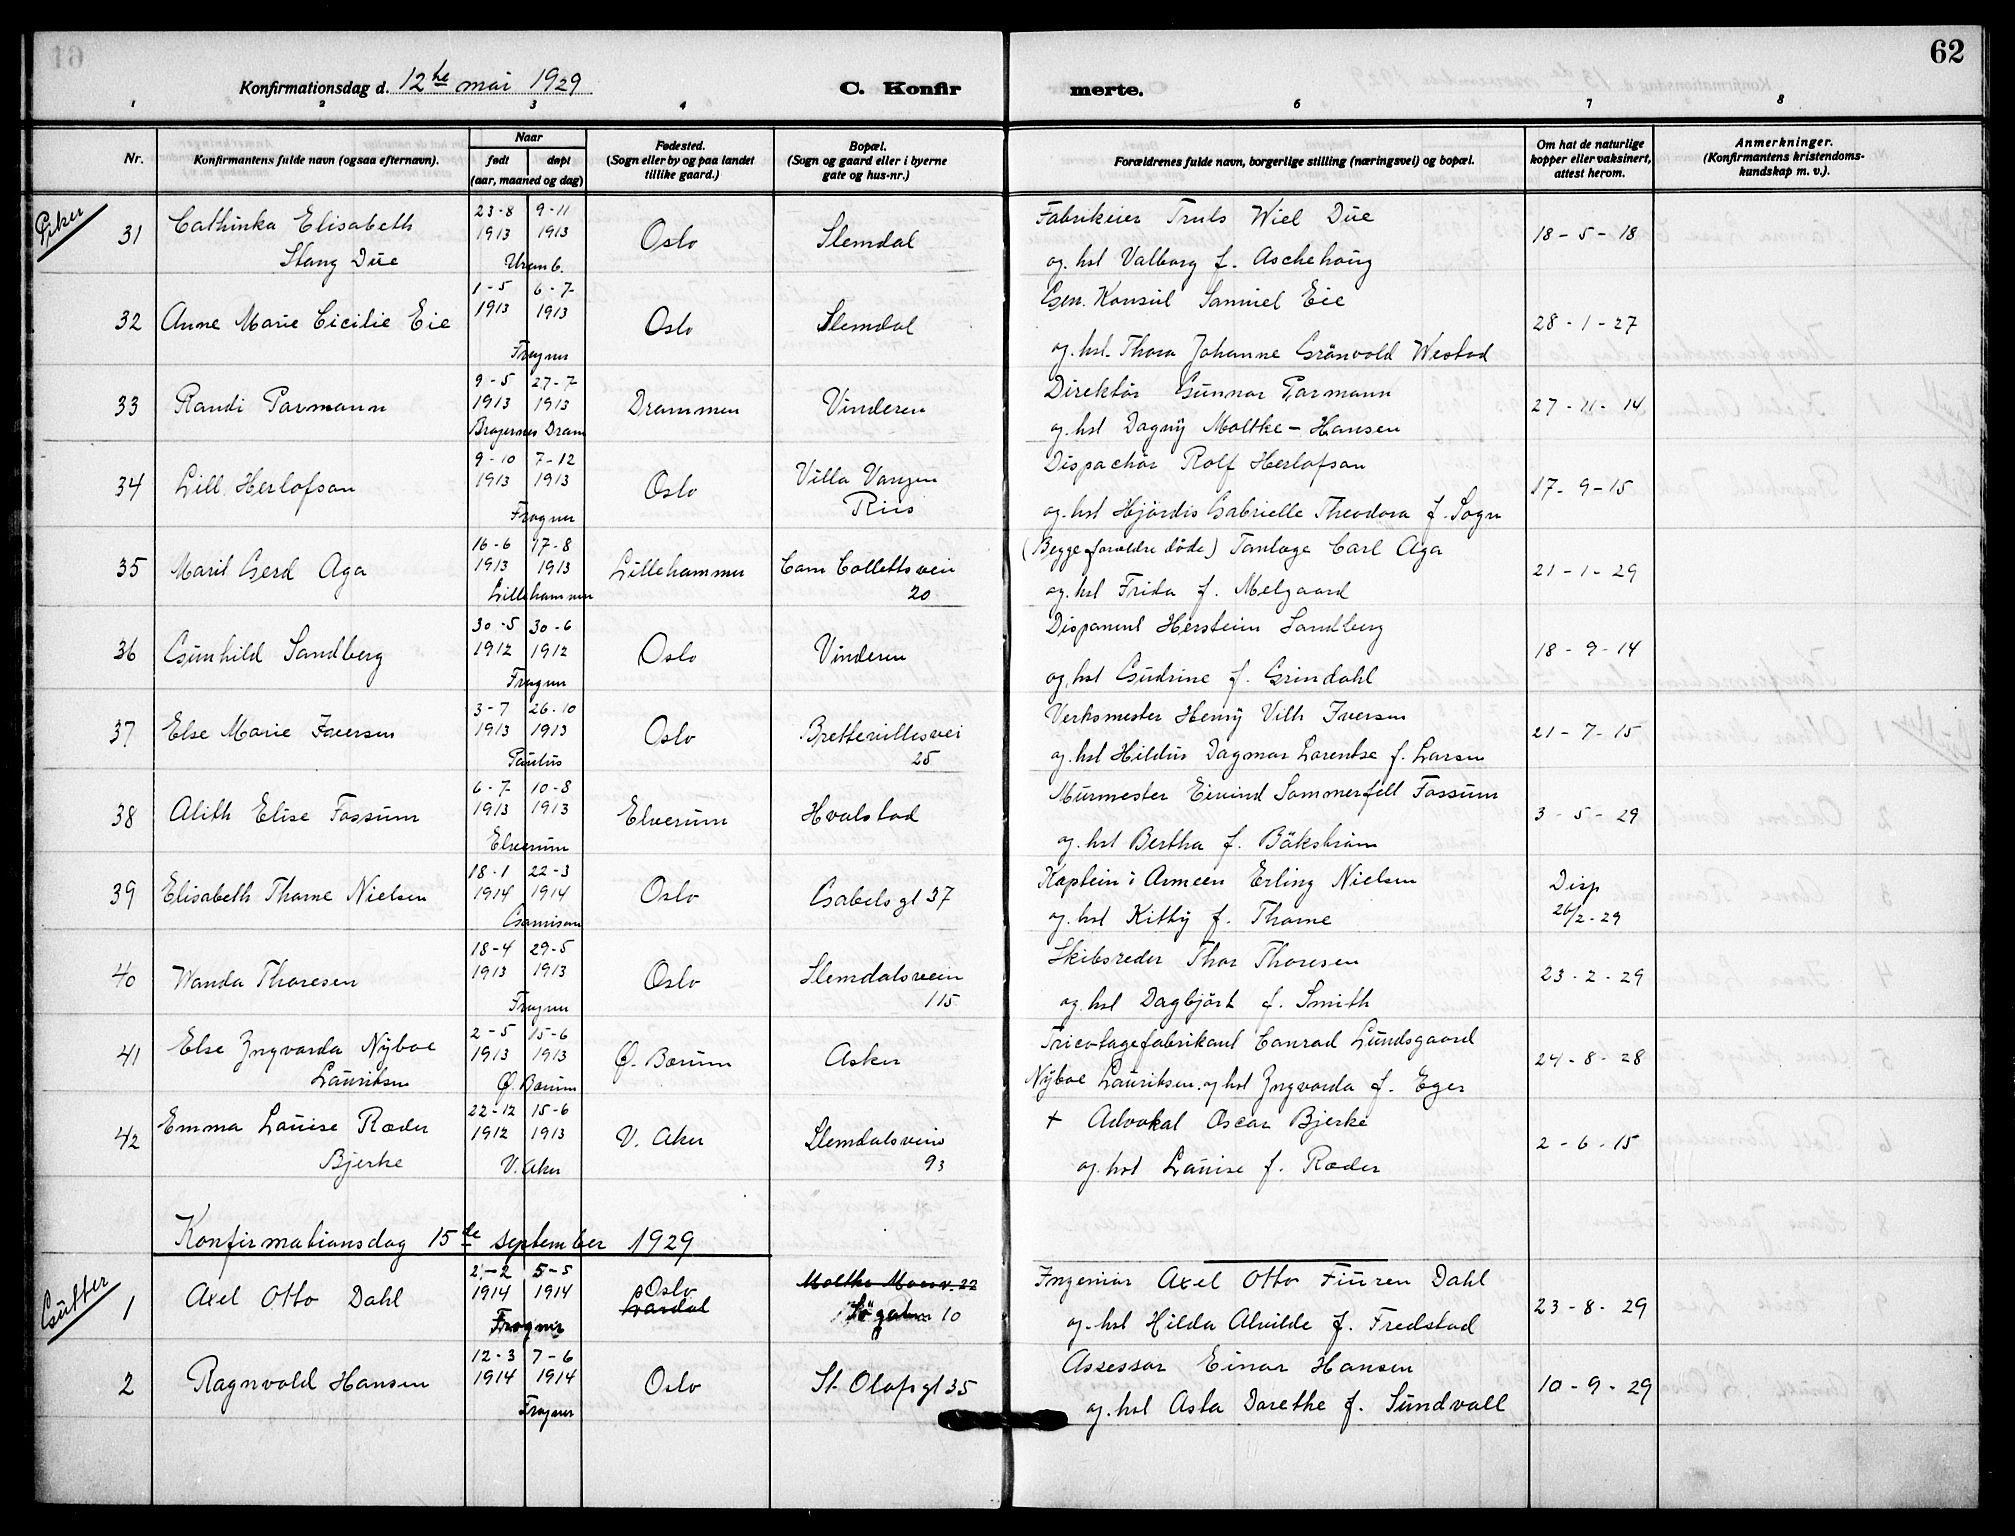 62
Konfirmationsdag d. 12te mai 1929
C. Konfirmerte.
1 2 3 4 6 7 8
Nr.
Konfirmantens fulde navn (ogsaa efternavn).
Naar
født døpt
(aar, maaned og dag)
Fødested.
(Sogn eller by og paa landet
tillike gaard.)
Bopæl.
(Sogn og gaard eller i byerne
gate og hus-nr.)
Forældrenes fulde navn, borgerlige stilling (næringsvei) og bopæl.
Om hat de naturlige
kopper eller vaksinert,
attest herom.
Anmerkninger.
(Konfirmantens kristendoms-
kundskap m. v.).
Piker
31 Cathinka Elisabeth
Stang Due
23-8 9-11
1913 1913
Uranb.
Oslo Slemdal
Fabrikeier Truls Wiel Due
og hst Valborg f. Aschehoug
18-5-18
32 Anne Marie Cicilie Eie
1-5 6-7
1913 1913
Frogner
Oslo Slemdal
Gen. Konsul Samuel Eie
og hst. Thora Johanne Grönvold Westad
28-1-27
33 Randi Parmann
9-5 27-7
1913 1913
Bragernes Dram
Drammen Vinderen
Direktör Gunnar Parmann
og hst Dagny Moltke-Hansen
27-11-14
34 Lill Herlofson
9-10 7-12
1913 1913
Frogner
Oslo
Villa Vangen
Riis
Dispachör Rolf Herlofson
og hst Hjördis Gabrielle Theodora f. Sogn
17-9-15
35 Marit Gerd Aga
16-6 17-8
1913 1913
Lillehammer
Lillehammer
Cam Collettsvei
20
(Begge forældre döde) Tanlæge Carl Aga
og hst Frida f. Melgaard
21-1-29
36 Gunhild Sandberg
30-5 30-6
1912 1912
Frogner
Oslo Vinderen
Disponent Herstein Sandberg
og hst Gudrine f. Grindahl
18-9-14
37 Else Marie Iversen
3-7 26-10
1913 1913
Paulus
Oslo
Brettevillesvei
25
Verksmester Henry Vilh Iversen
og hst Hildur Dagmar Lorentse f. Larsen
21-7-15
38 Alith Elise Fossum
6-7 10-8
1913 1913
Elverum
Elverum Hvalstad
Murmester Eivind Sommerfelt Fossum
og hst Bertha f. Bäkström
3-5-29
39 Elisabeth Thorne Nielsen
18-1 22-3
1914 1914
Garnison
Oslo Gabelsgt 37
Kaptein i Armeen Erling Nielsen
og hst Kitty f. Thorne
Disp
26/2-29
40 Wanda Thoresen
18-4 29-5
1913 1913
Frogner
Oslo
Slemdalsveien
115
Skibsreder Thor Thoresen
og hst Dagbjört f. Smith
23-2-29
41 Else Yngvarda Nyboe
Lauritsen
2-5 15-6
1913 1913
Ø. Bærum
Ø. Bærum Asker
Tricotagefabrikant Conrad Lundsgaard
Nyboe Lauritsen og hst Yngvarda f. Eger
24-8-28
42 Emma Louise Ræder
Bjerke
22-12 15-6
1912 1913
V. Aker
V. Aker
Slemdalsveien
93
+ Advokat Oscar Bjerke
og hst Louise f. Ræder
2-6-15
Konfirmationsdag 15de september 1929
Gutter
1 Axel Otto Dahl
2-2 5-5
1914 1914
Frogner
Oslo
Moltke Moesv. 22
10
Ingeniör Axel Otto Finren Dahl
og hst Hilda Alvilde f. Fredstad
23-8-29
2 Ragnvald Hansen
12-3 7-6
1914 1914
Frogner
Oslo St. Olafsgt 35
Assessor Einar Hansen
og hst Asta Dorethe f. Sundvall
10-9-29